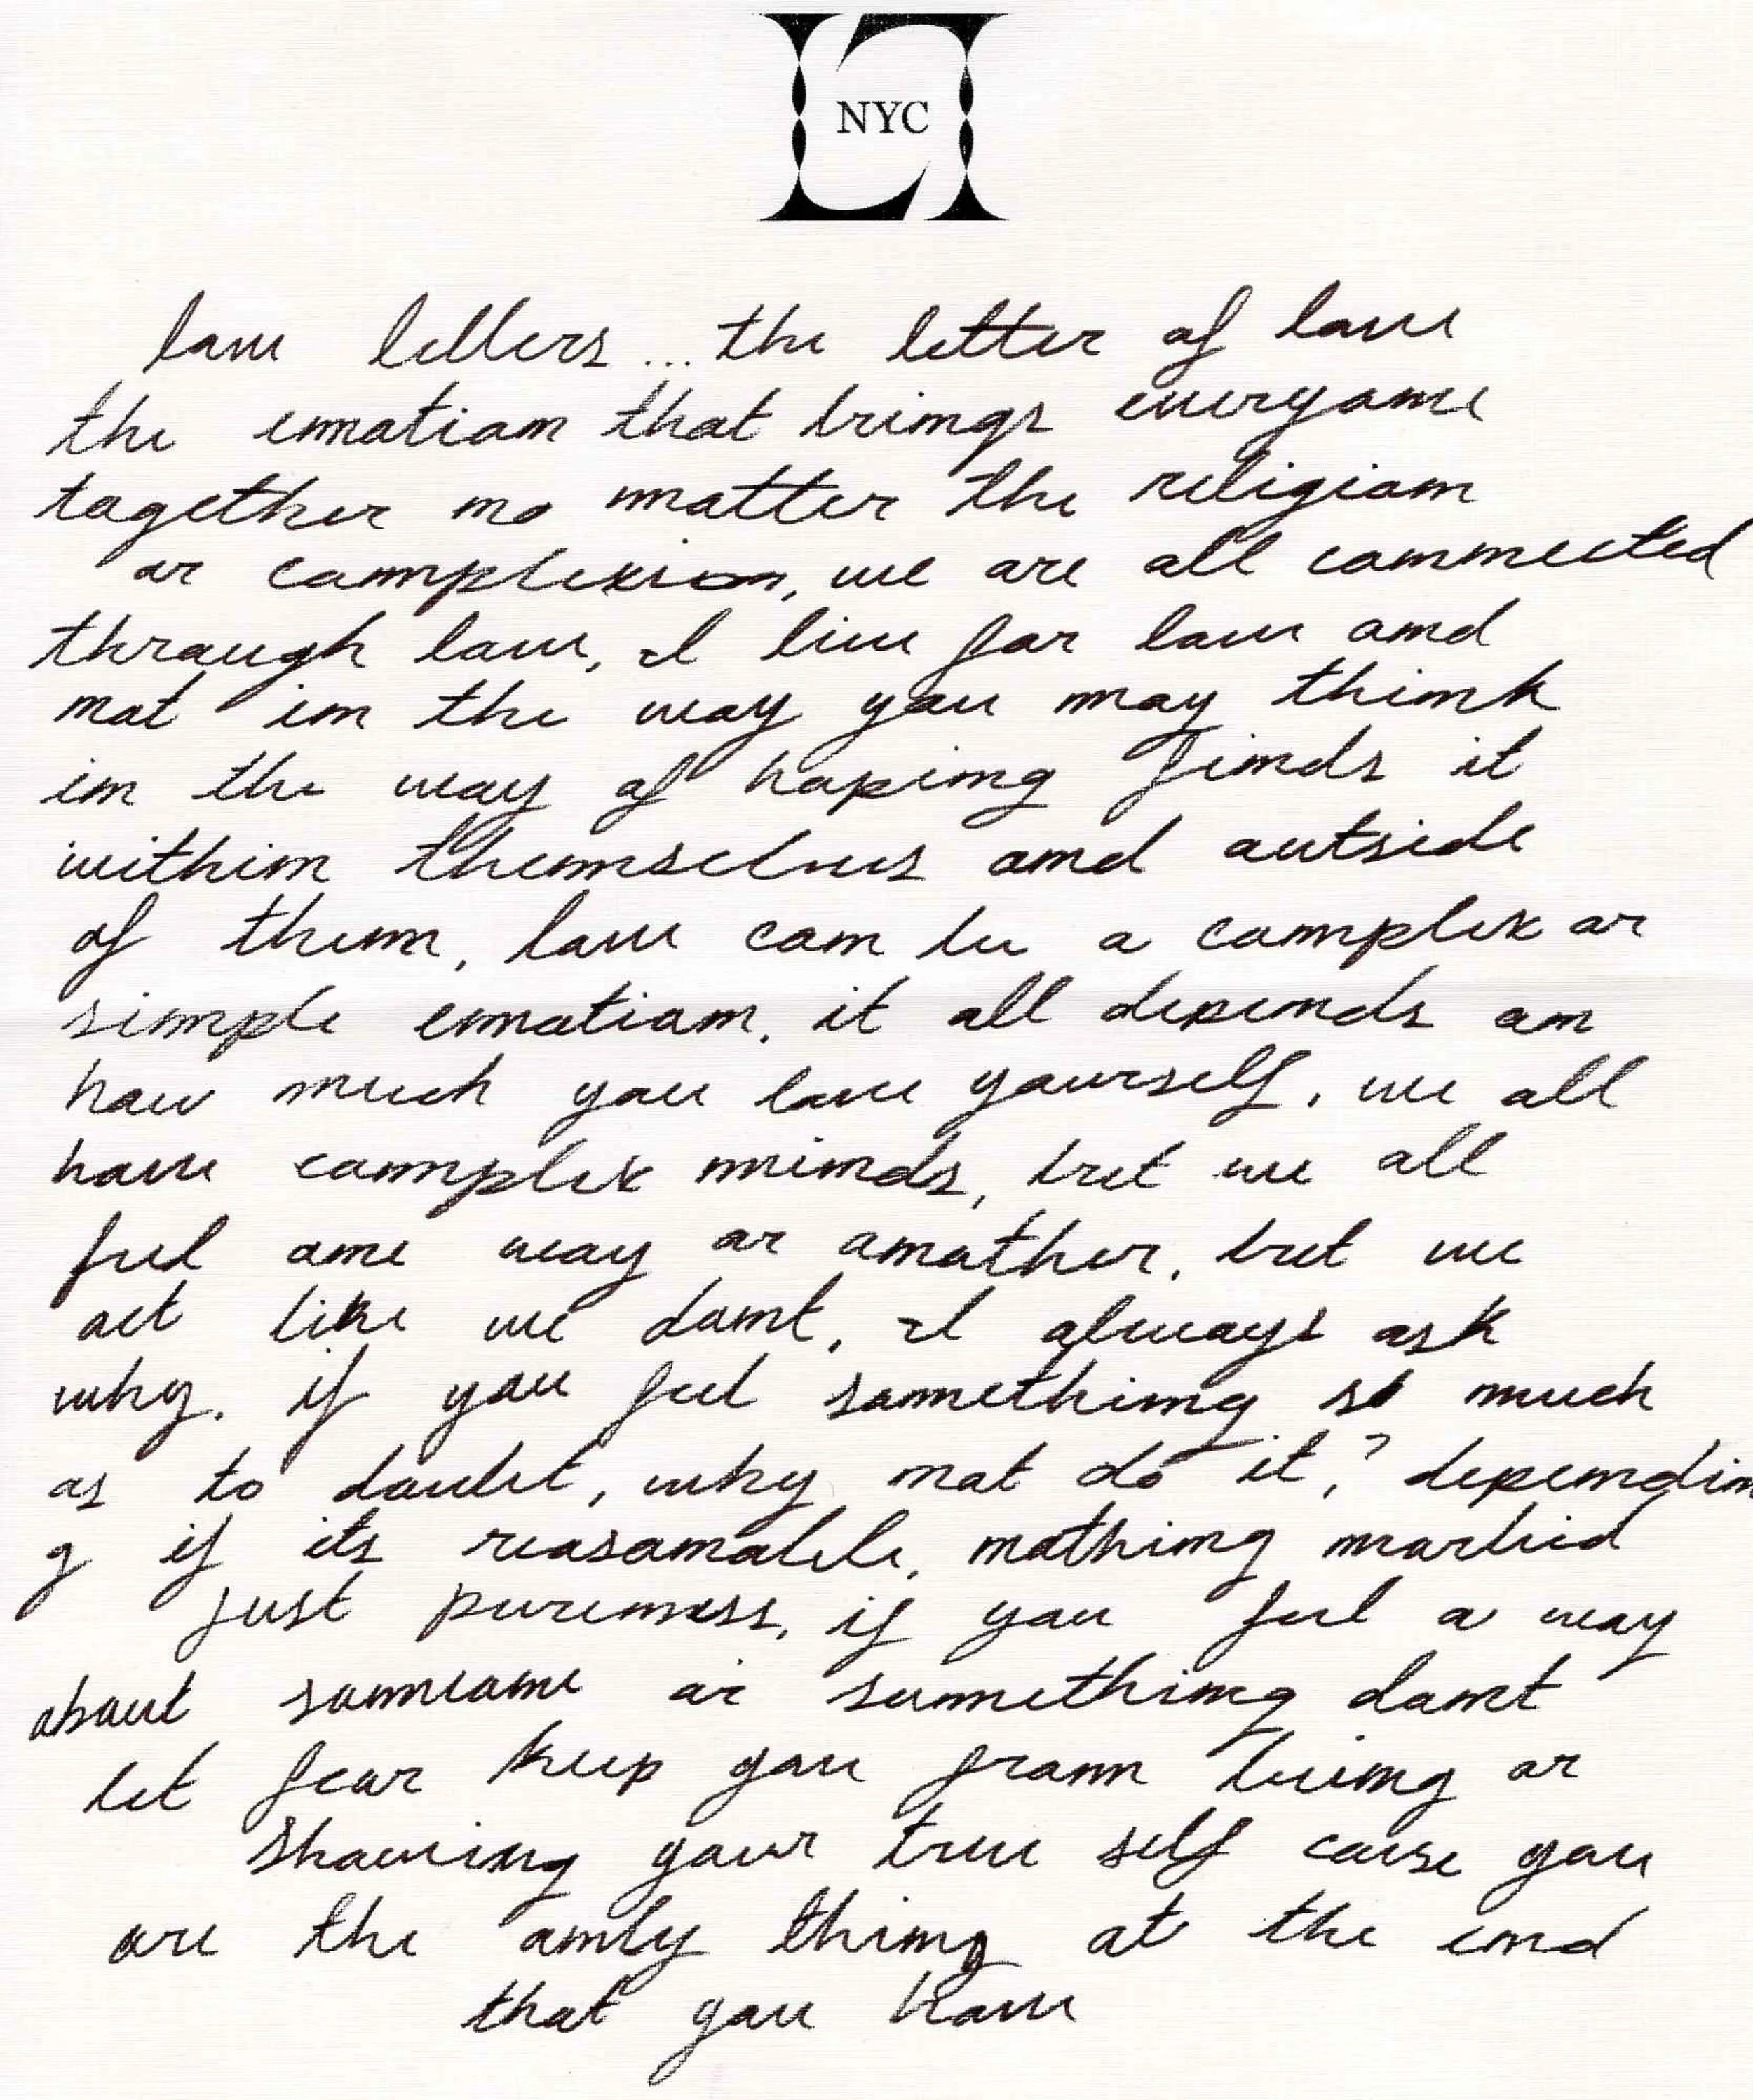 NYC
love letters... the letter of love
the emotion that brings everyone
together no matter the religion
or complexion, we are all connected
through love, I live for love and
not in the way you may think
in the way of hoping finds it
within themselves and outside
of them, love can be a complex or
simple emotion. it all depends on
how much you love yourself. we all
have complex minds, but we all
feel one way or another. but we
act like we dont. I always ask
why. if you feel something so much
as to doubt, why not do it,? dependin
g if its reasonable. nothing morbid
just pureness, if you feel a way
about someone or something dont
let fear keep you from being or
showing your true self cause you
are the only thing at the end
that you have